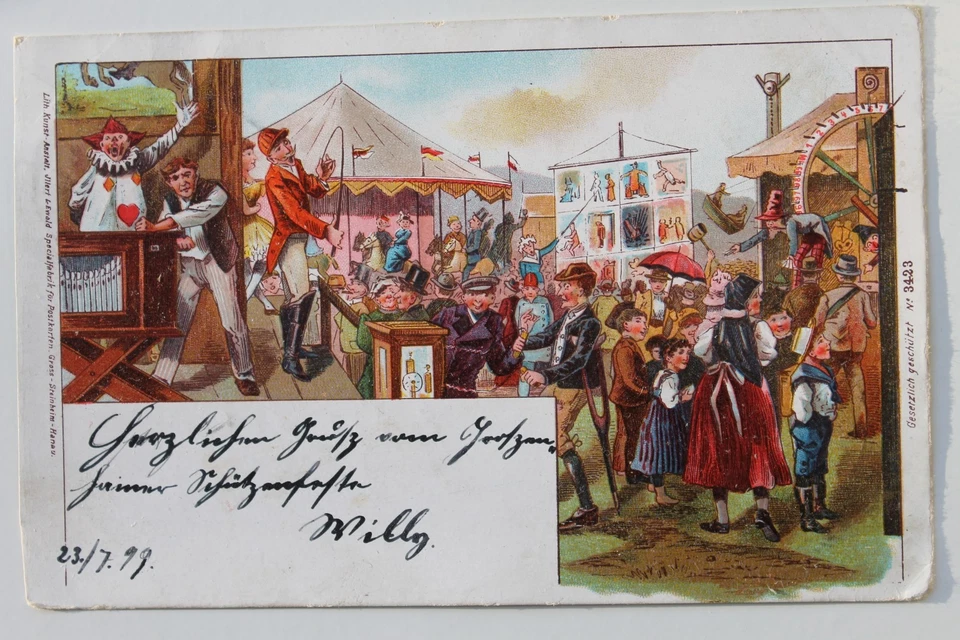 Lith. Kunst-Anstalt, Illert & Ewald Specialfabrik für Postkarten. Gross-Steinheim-Hanau.
Herzlichen Grusz vom Groszen-
hainer Schützenfeste
Willy.
23./7.99.
Gesetzlich geschützt No 3423